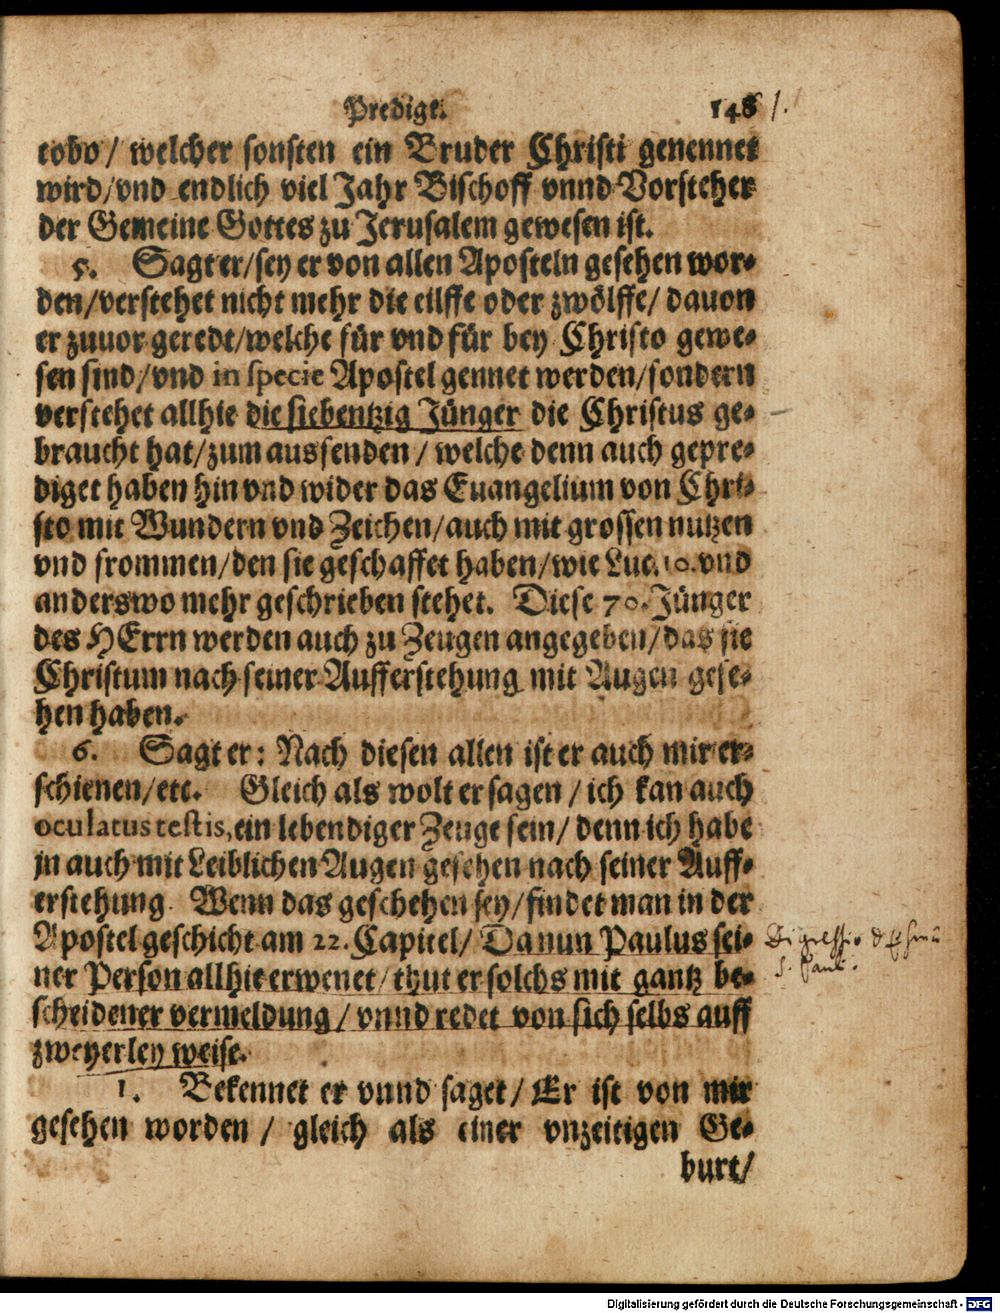 Predigt. 148
cobo/ welcher sonsten ein Bruder Christi genennet
wird/vnd endlich viel Jahr Bischoff vnnd Vorsteher
der Gemeine Gottes zu Jerusalem gewesen ist.
5. Sagt er/sey er von allen Aposteln gesehen wor-
den/verstehet nicht mehr die eilffe oder zwölffe/ dauon
er zuuor geredt/welche für vnd für bey Christo gewe-
sen sind/vnd in specie Apostel gennet werden/sondern
verstehet allhie die siebentzig Jünger die Christus ge-
braucht hat/zum aussenden/ welche denn auch gepre-
diget haben hin vnd wider das Euangelium von Chri-
sto mit Wundern vnd Zeichen/auch mit grossen nutzen
vnd frommen/den sie geschaffet haben/wie Luc. 10. vnd
anderswo mehr geschrieben stehet. Diese 70. Jünger
des HErrn werden auch zu Zeugen angegeben/das sie
Christum nach seiner Aufferstehung mit Augen gese-
hen haben.
6. Sagt er: Nach diesen allen ist er auch mir er-
schienen/etc. Gleich als wolt er sagen/ich kan auch
oculatus testis, ein lebendiger Zeuge sein/ denn ich habe
jn auch mit Leiblichen Augen gesehen nach seiner Auff-
erstehung. Wenn das geschehen sey/findet man in der
Apostel geschicht am 22. Capitel/ Da nun Paulus sei-
ner Person allhie erwenet/thut er solchs mit gantz be-
scheidener vermeldung/vnnd redet von sich selbs auff
zweyerley weise.
Digressio de
S. Pauli.
1. Bekennet er vnnd saget/ Er ist von mir
gesehen worden/ gleich als einer vnzeitigen Ge-
burt/
Digitalisierung gefördert durch die Deutsche Forschungsgemeinschaft - DFG